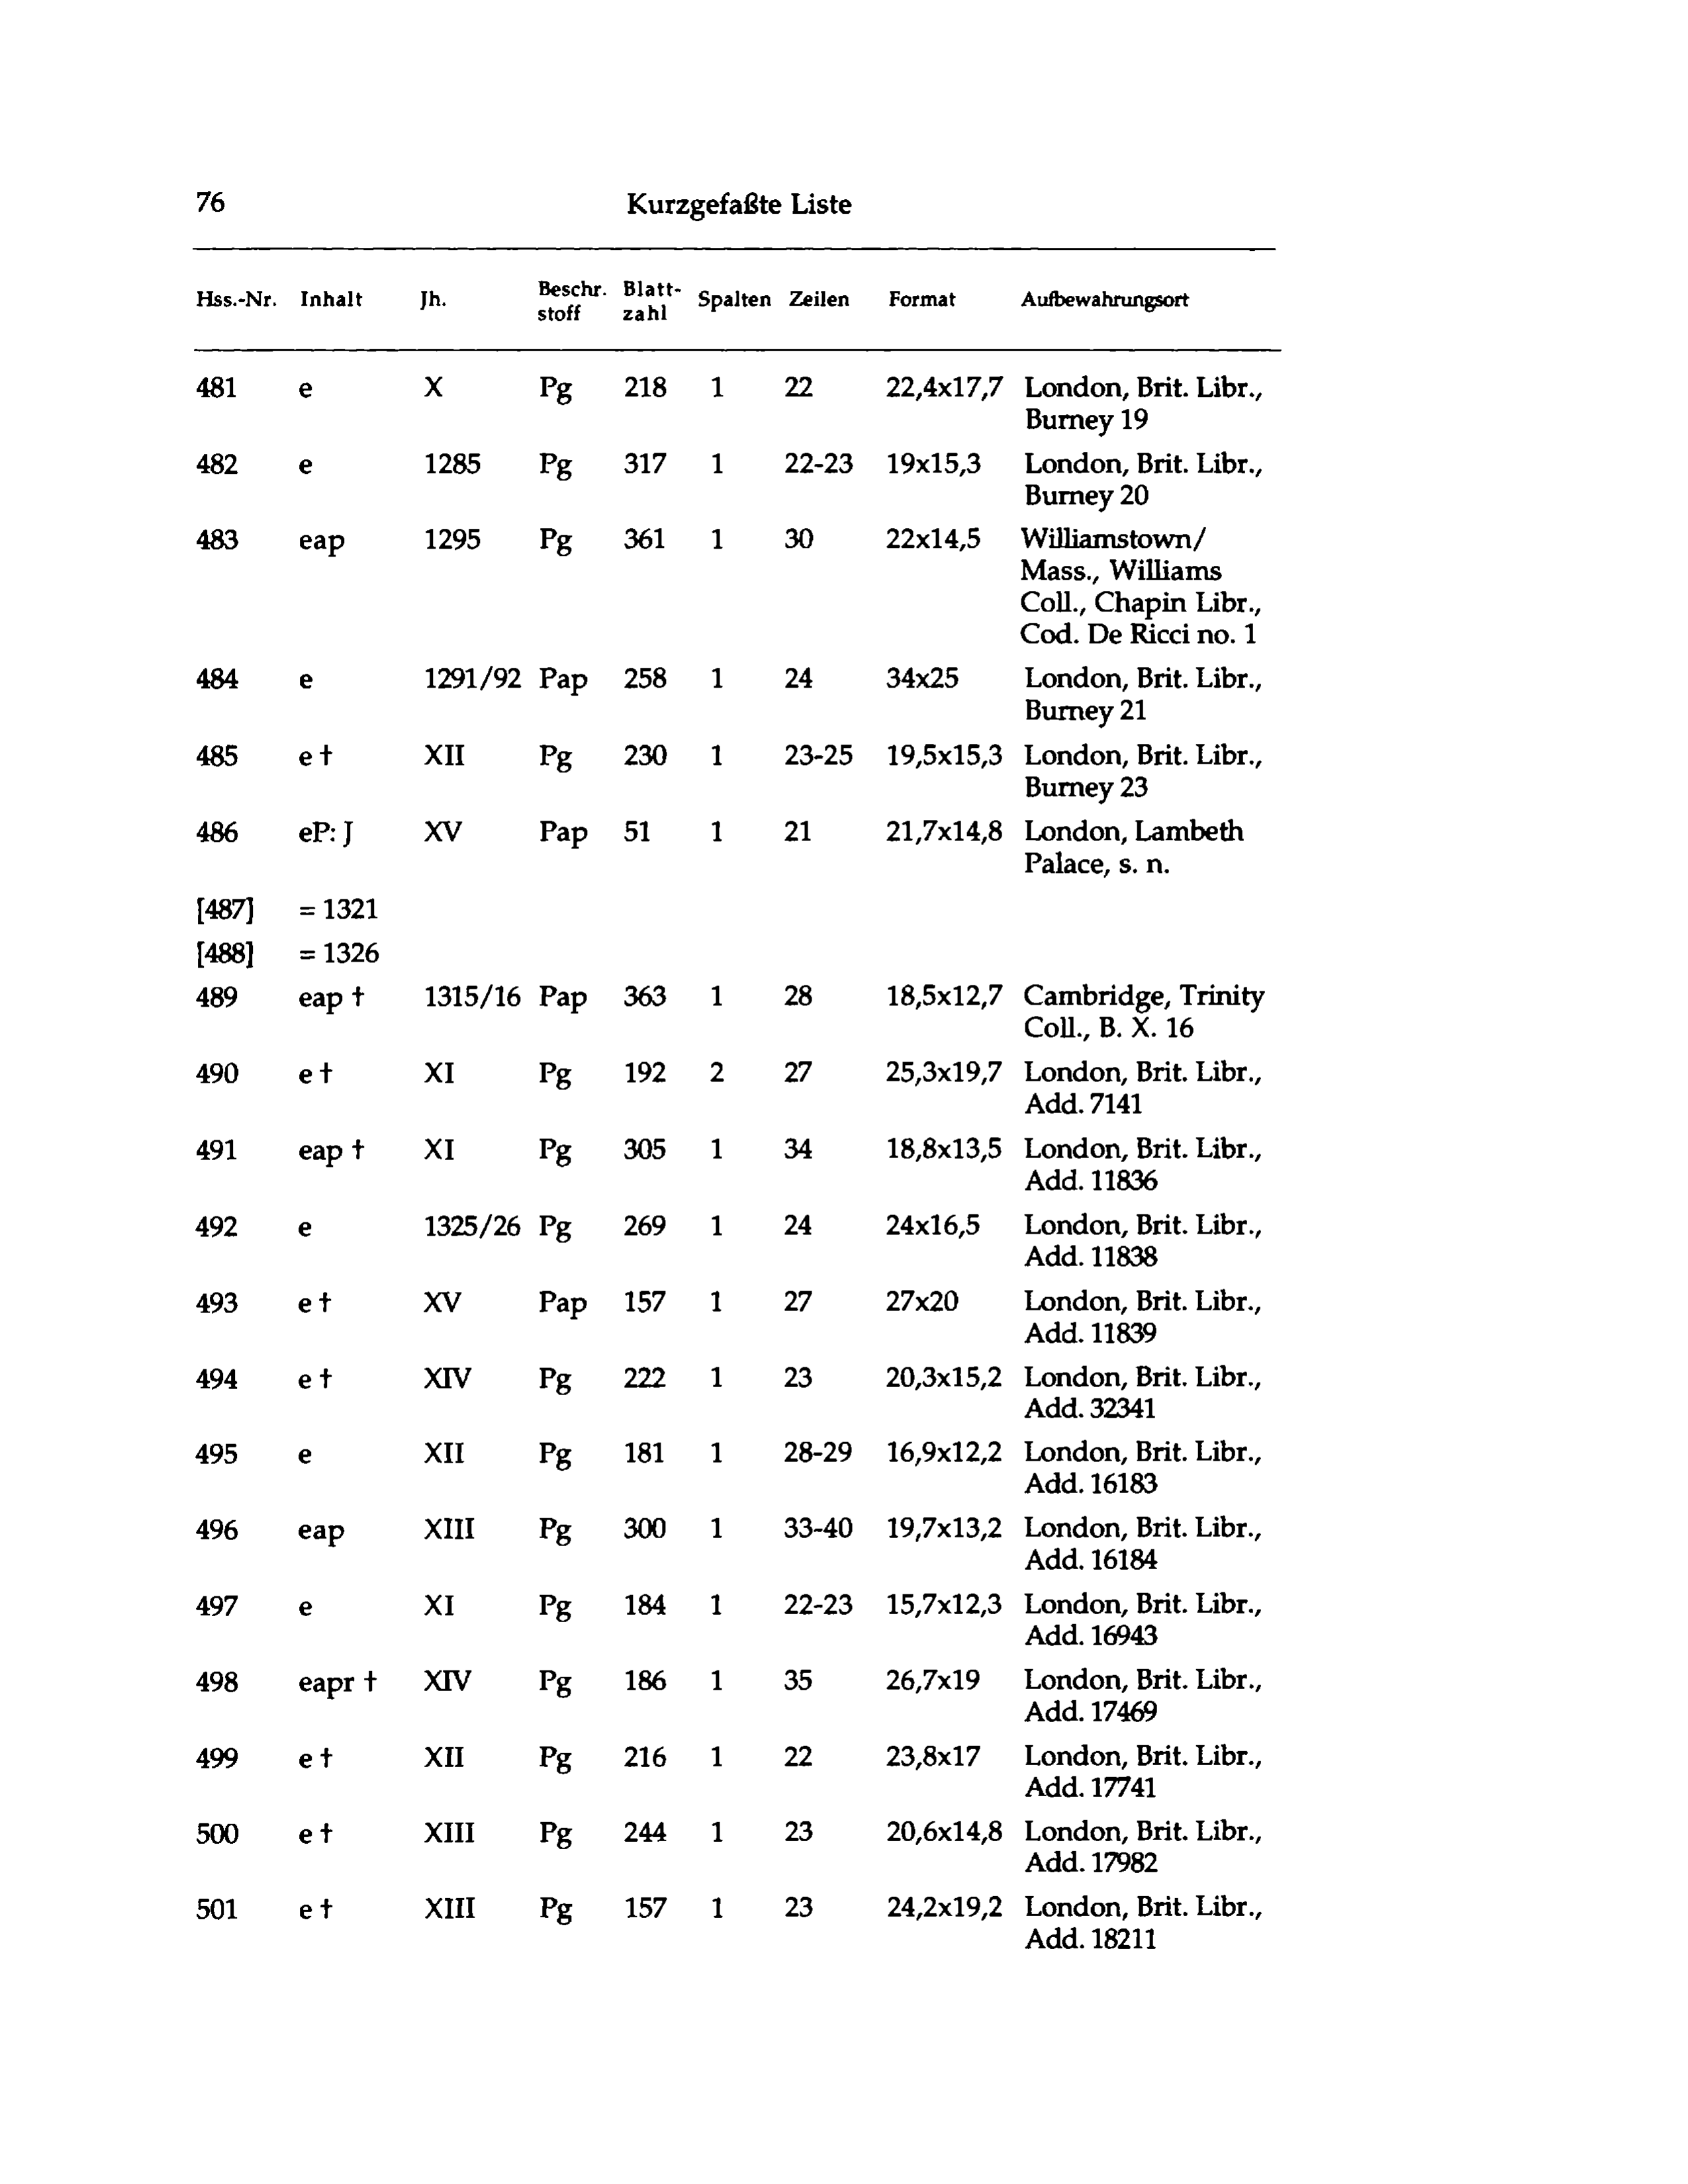 76 Kurzgefaßte Liste
Hss.-Nr. Inhalt Jh. Beschr. stoff Blatt- zahl Spalten Zeilen Format Aufbewahrungsort
481 e X Pg 218 1 22 22,4x17,7 London, Brit. Libr.,
Burney 19
482 e 1285 Pg 317 1 22-23 19x15,3 London, Brit. Libr.,
Burney 20
483 eap 1295 Pg 361 1 30 22x14,5 Williamstown/
Mass., Williams
Coll., Chapin Libr.,
Cod. De Ricci no. 1
484 e 1291/92 Pap 258 1 24 34x25 London, Brit. Libr.,
Burney 21
485 e † XII Pg 230 1 23-25 19,5x15,3 London, Brit. Libr.,
Burney 23
486 eP: J XV Pap 51 1 21 21,7x14,8 London, Lambeth
Palace, s. n.
[487] = 1321
[488] = 1326
489 eap † 1315/16 Pap 363 1 28 18,5x12,7 Cambridge, Trinity
Coll., B. X. 16
490 e † XI Pg 192 2 27 25,3x19,7 London, Brit. Libr.,
Add. 7141
491 eap † XI Pg 305 1 34 18,8x13,5 London, Brit. Libr.,
Add. 11836
492 e 1325/26 Pg 269 1 24 24x16,5 London, Brit. Libr.,
Add. 11838
493 e † XV Pap 157 1 27 27x20 London, Brit. Libr.,
Add. 11839
494 e † XIV Pg 222 1 23 20,3x15,2 London, Brit. Libr.,
Add. 32341
495 e XII Pg 181 1 28-29 16,9x12,2 London, Brit. Libr.,
Add. 16183
496 eap XIII Pg 300 1 33-40 19,7x13,2 London, Brit. Libr.,
Add. 16184
497 e XI Pg 184 1 22-23 15,7x12,3 London, Brit. Libr.,
Add. 16943
498 eapr † XIV Pg 186 1 35 26,7x19 London, Brit. Libr.,
Add. 17469
499 e † XII Pg 216 1 22 23,8x17 London, Brit. Libr.,
Add. 17741
500 e † XIII Pg 244 1 23 20,6x14,8 London, Brit. Libr.,
Add. 17982
501 e † XIII Pg 157 1 23 24,2x19,2 London, Brit. Libr.,
Add. 18211